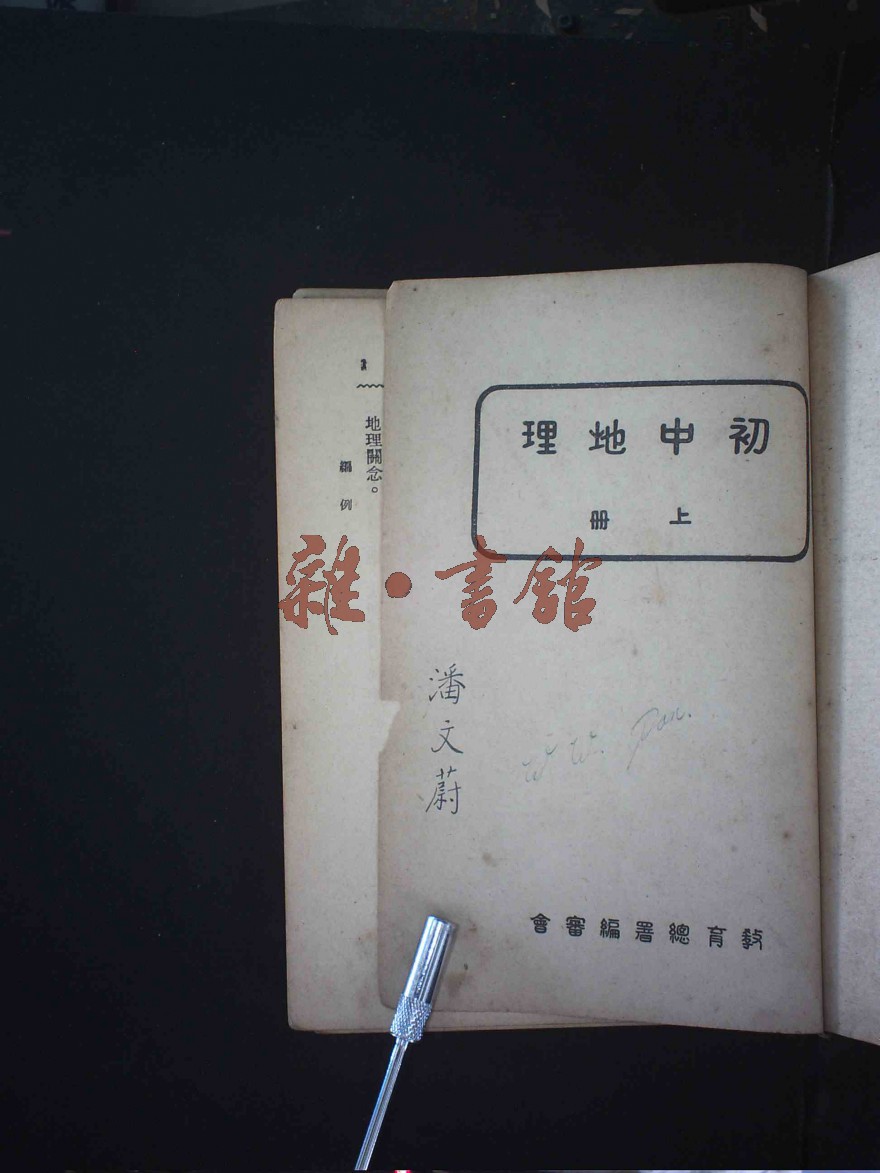 初中地理
上冊
潘文蔚
W. W. Pan.
教育總署編審會
地理關念。
編例
雜·書館